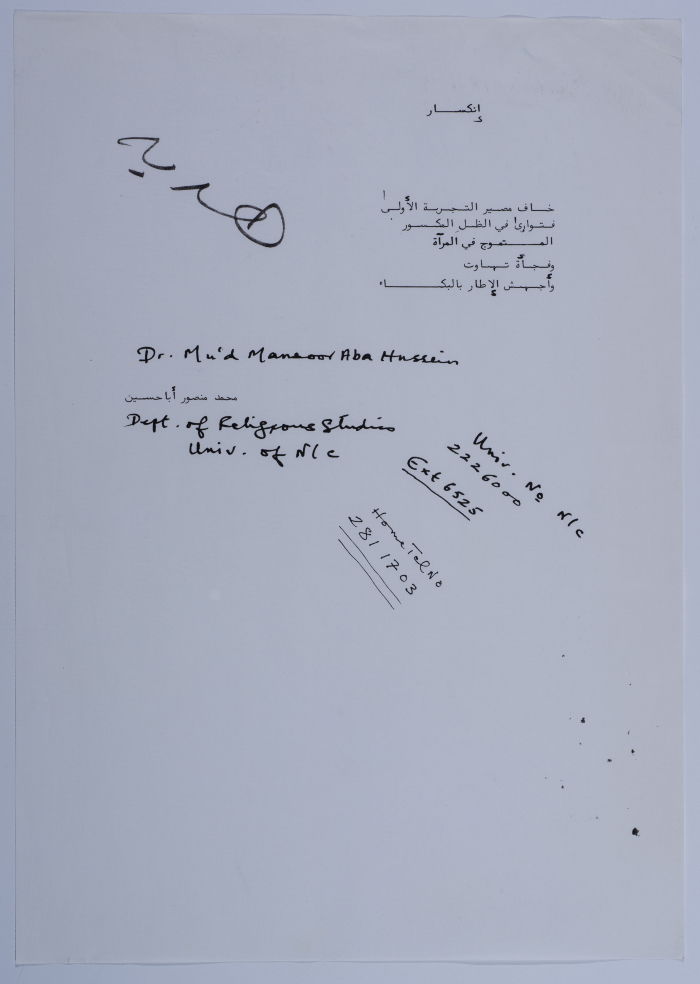 إنكسار
خاف مصير التجربة الأولى
فتوارئ في الظل المكسور
المتموج في المرآة
وفجأة تهاوت
وأجهش الإطار بالبكاء
Dr. Mu'd Mansoor Aba Hussein
محمد منصور أباحسين
Dept. of Religious Studies
Univ. of N/c
Univ. No N/c
2226000
Ext 6525
Home Tel No
2811703